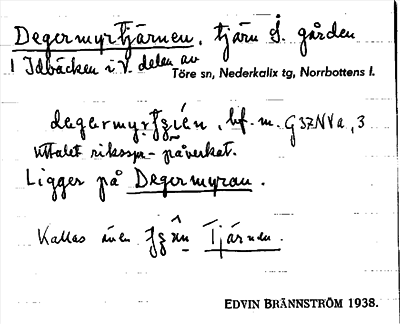 Degermyrtjärnen, tjärn S. gården
i Idbäcken i V. delen av
Töre sn, Nederkalix tg, Norrbottens l.
bf. m. G3ZNVa, 3
Uttalet riksspr- påverkat.
Ligger på Degermyran.
Kallas även Tjärnen.
EDVIN BRÄNNSTRÖM 1938.